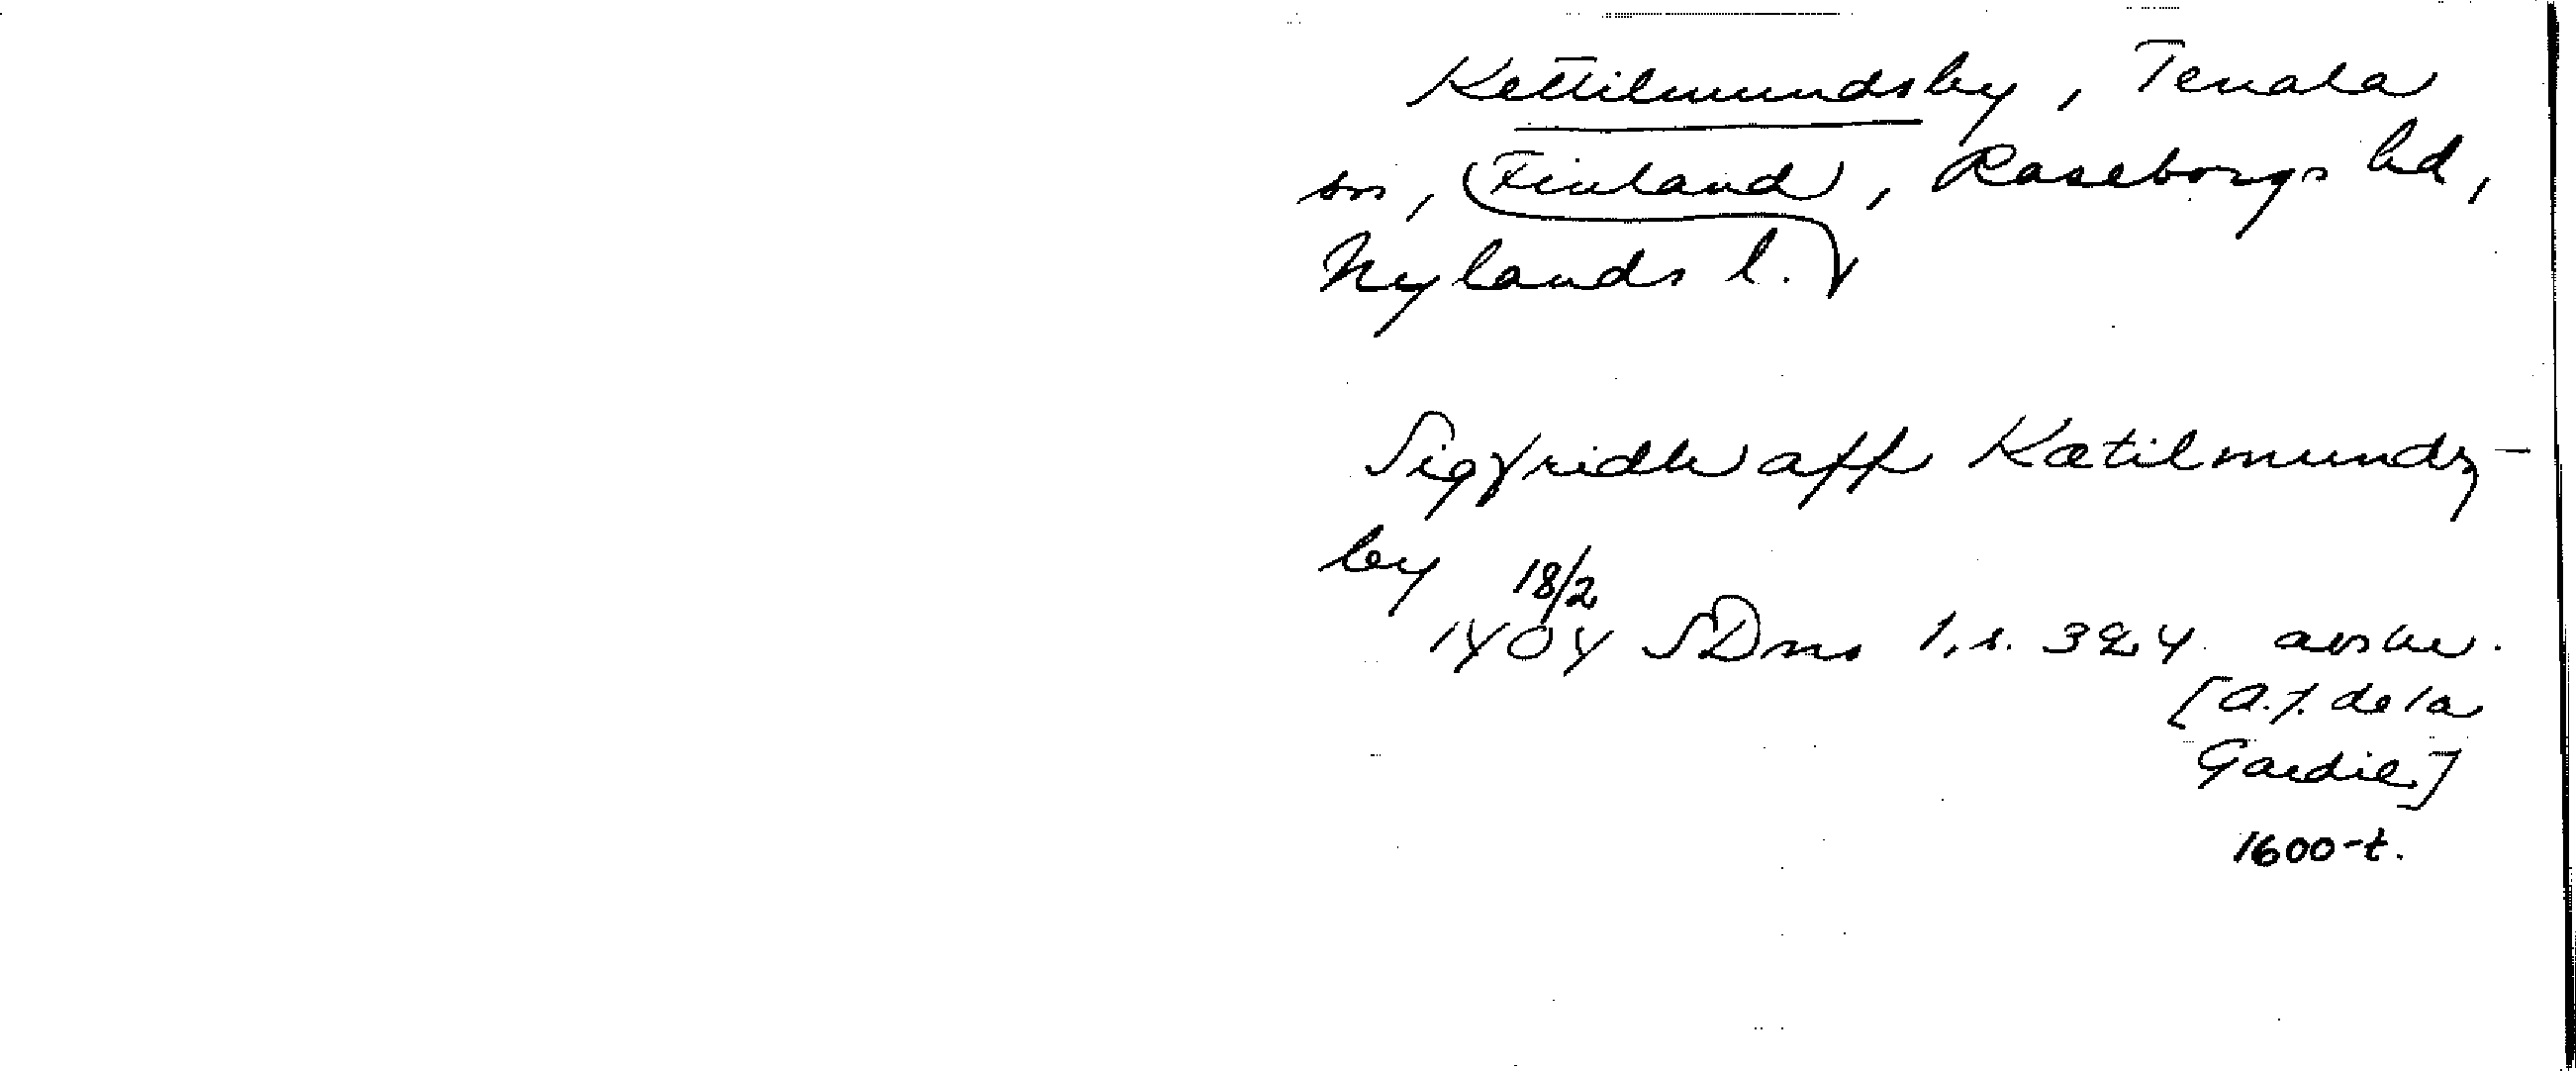 Kettilmundsby, Tenala
sn, (Finland), Raseborgs hd,
Nylands l.
Sigfridh aff Katilmundz-
by
18/2
1404 SDns 1, s. 324 avskr.
[A.J. de la
Gardie]
1600-t.